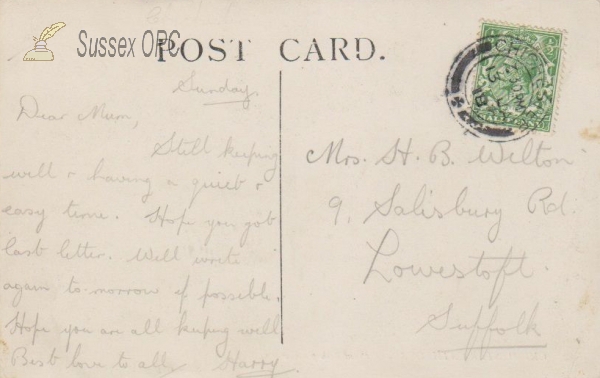 Sussex OPC
POST CARD.
Sunday.
Dear Mum,
Still keeping
well & having a quiet &
easy time. Hope you got
last letter. Will write
again to-morrow if possible.
Hope you are all keeping well
Best love to all, Harry.
Mrs. H. B. Wilton
9, Salisbury Rd.
Lowestoft.
Suffolk